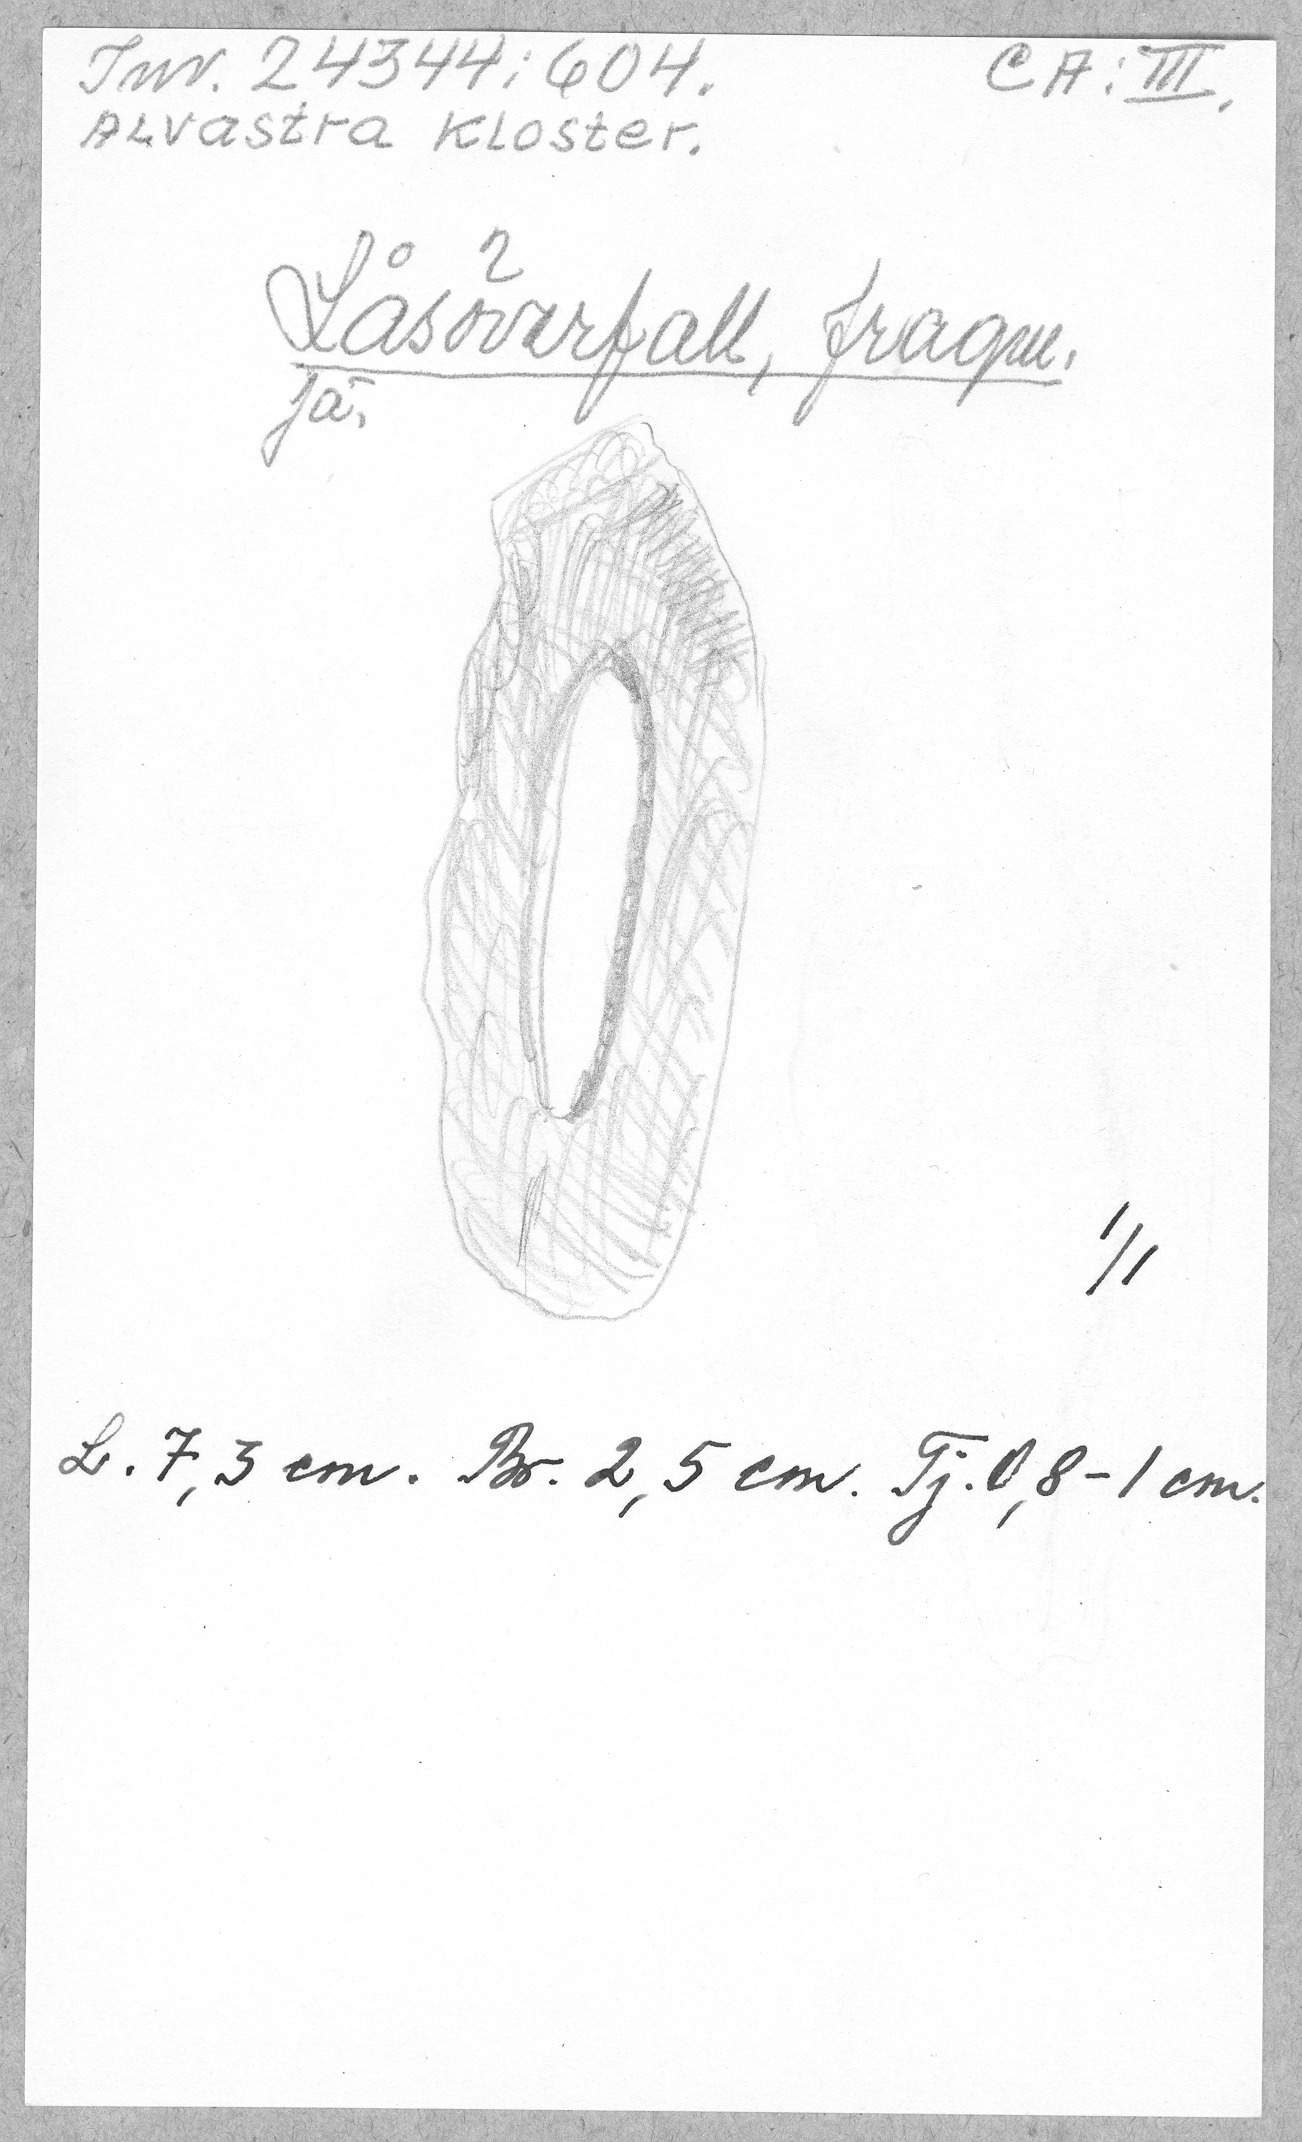 Inv. 24344:604. CA: III.
Alvastra Kloster.
Låsöverfall, fragm.
Jä.
1/1
L. 7,3 cm. Br. 2,5 cm. Tj. 0,8-1 cm.